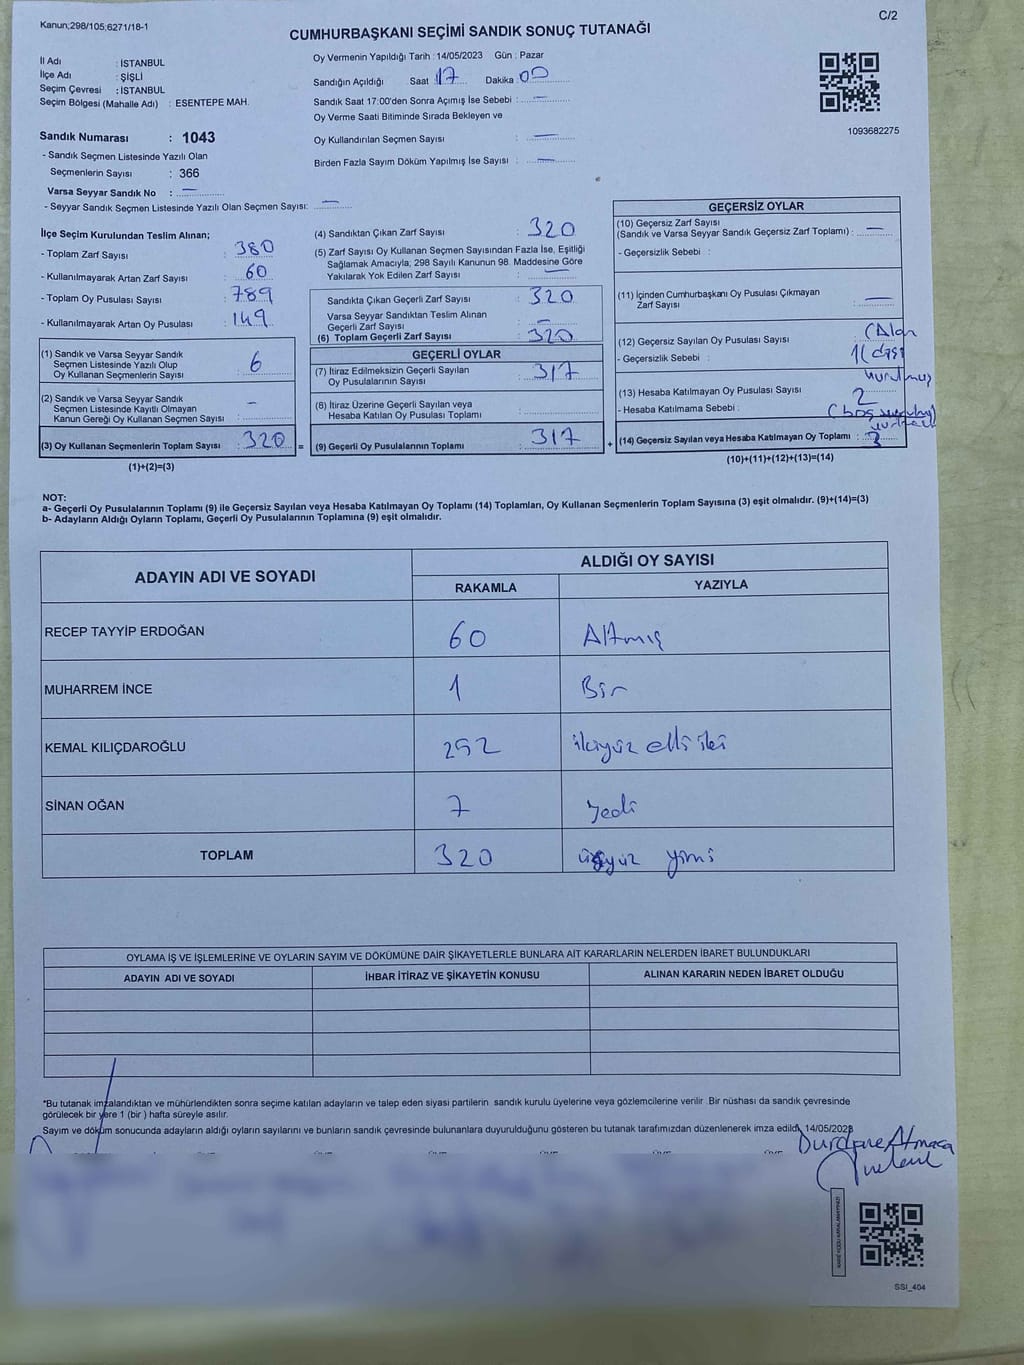 Kanun;298/105;6271/18-1
C/2
CUMHURBAŞKANI SEÇİMİ SANDIK SONUÇ TUTANAĞI
İl Adı : İSTANBUL
İlçe Adı : ŞİŞLİ
Seçim Çevresi : İSTANBUL
Seçim Bölgesi (Mahalle Adı) : ESENTEPE MAH.
Oy Vermenin Yapıldığı Tarih : 14/05/2023 Gün : Pazar
Sandığın Açıldığı Saat 17 Dakika 00
Sandık Saat 17:00'den Sonra Açımış İse Sebebi : —
Oy Verme Saati Bitiminde Sırada Bekleyen ve
Oy Kullandırılan Seçmen Sayısı : —
Birden Fazla Sayım Döküm Yapılmış İse Sayısı : —
1093682275
Sandık Numarası : 1043
- Sandık Seçmen Listesinde Yazılı Olan
Seçmenlerin Sayısı : 366
Varsa Seyyar Sandık No : —
- Seyyar Sandık Seçmen Listesinde Yazılı Olan Seçmen Sayısı: —
İlçe Seçim Kurulundan Teslim Alınan;
- Toplam Zarf Sayısı : 380
- Kullanılmayarak Artan Zarf Sayısı : 60
- Toplam Oy Pusulası Sayısı : 789
- Kullanılmayarak Artan Oy Pusulası : 149
(1) Sandık ve Varsa Seyyar Sandık
Seçmen Listesinde Yazılı Olup
Oy Kullanan Seçmenlerin Sayısı : 6
(2) Sandık ve Varsa Seyyar Sandık
Seçmen Listesinde Kayıtlı Olmayan
Kanun Gereği Oy Kullanan Seçmen Sayısı : —
(3) Oy Kullanan Seçmenlerin Toplam Sayısı : 320 =
(1)+(2)=(3)
(4) Sandıktan Çıkan Zarf Sayısı : 320
(5) Zarf Sayısı Oy Kullanan Seçmen Sayısından Fazla İse, Eşitliği
Sağlamak Amacıyla; 298 Sayılı Kanunun 98. Maddesine Göre
Yakılarak Yok Edilen Zarf Sayısı : —
Sandıkta Çıkan Geçerli Zarf Sayısı : 320
Varsa Seyyar Sandıktan Teslim Alınan
Geçerli Zarf Sayısı : —
(6) Toplam Geçerli Zarf Sayısı : 320
GEÇERLİ OYLAR
(7) İtiraz Edilmeksizin Geçerli Sayılan
Oy Pusulalarının Sayısı : 317
(8) İtiraz Üzerine Geçerli Sayılan veya
Hesaba Katılan Oy Pusulası Toplamı :
(9) Geçerli Oy Pusulalarının Toplamı : 317 +
GEÇERSİZ OYLAR
(10) Geçersiz Zarf Sayısı
(Sandık ve Varsa Seyyar Sandık Geçersiz Zarf Toplamı) : —
- Geçersizlik Sebebi :
(11) İçinden Cumhurbaşkanı Oy Pusulası Çıkmayan
Zarf Sayısı : —
(12) Geçersiz Sayılan Oy Pusulası Sayısı : 1
- Geçersizlik Sebebi :
(13) Hesaba Katılmayan Oy Pusulası Sayısı : 2
- Hesaba Katılmama Sebebi :
(14) Geçersiz Sayılan veya Hesaba Katılmayan Oy Toplamı : 3
(10)+(11)+(12)+(13)=(14)
NOT:
a- Geçerli Oy Pusulalarının Toplamı (9) ile Geçersiz Sayılan veya Hesaba Katılmayan Oy Toplamı (14) Toplamları, Oy Kullanan Seçmenlerin Toplam Sayısına (3) eşit olmalıdır. (9)+(14)=(3)
b- Adayların Aldığı Oyların Toplamı, Geçerli Oy Pusulalarının Toplamına (9) eşit olmalıdır.
ADAYIN ADI VE SOYADI
ALDIĞI OY SAYISI
RAKAMLA YAZIYLA
RECEP TAYYİP ERDOĞAN 60 Altmış
MUHARREM İNCE 1 Bir
KEMAL KILIÇDAROĞLU 252 ikiyüz elli iki
SİNAN OĞAN 7 Yedi
TOPLAM 320 üçyüz yirmi
OYLAMA İŞ VE İŞLEMLERİNE VE OYLARIN SAYIM VE DÖKÜMÜNE DAİR ŞİKAYETLERLE BUNLARA AİT KARARLARIN NELERDEN İBARET BULUNDUKLARI
ADAYIN ADI VE SOYADI İHBAR İTİRAZ VE ŞİKAYETİN KONUSU ALINAN KARARIN NEDEN İBARET OLDUĞU
*Bu tutanak imzalandıktan ve mühürlendikten sonra seçime katılan adayların ve talep eden siyasi partilerin sandık kurulu üyelerine veya gözlemcilerine verilir .Bir nüshası da sandık çevresinde
görülecek bir yere 1 (bir ) hafta süreyle asılır.
Sayım ve döküm sonucunda adayların aldığı oyların sayılarını ve bunların sandık çevresinde bulunanlara duyurulduğunu gösteren bu tutanak tarafımızdan düzenlenerek imza edildi. 14/05/2023
Durdane Atmaca
SSİ_404